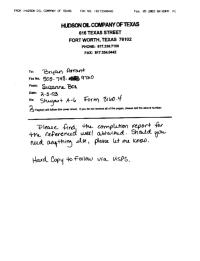 FROM :HUDSON OIL COMPANY OF TEXAS
HUDSON OIL COMPANY OF TEXAS
616 TEXAS STREET
FORT WORTH, TEXAS 76102
PHONE: 817.336.7109
FAX: 817.334.0442
To: Bryan Arrant
Fax No. 505-748-9720
From: Suzanne Box
Date: 2-5-03
Re: Stewart A-6 Form 3160-4
Please find the completion report for
the referenced well attached. Should you
need anything else, please let me know.
Hard Copy to Follow via USPS.